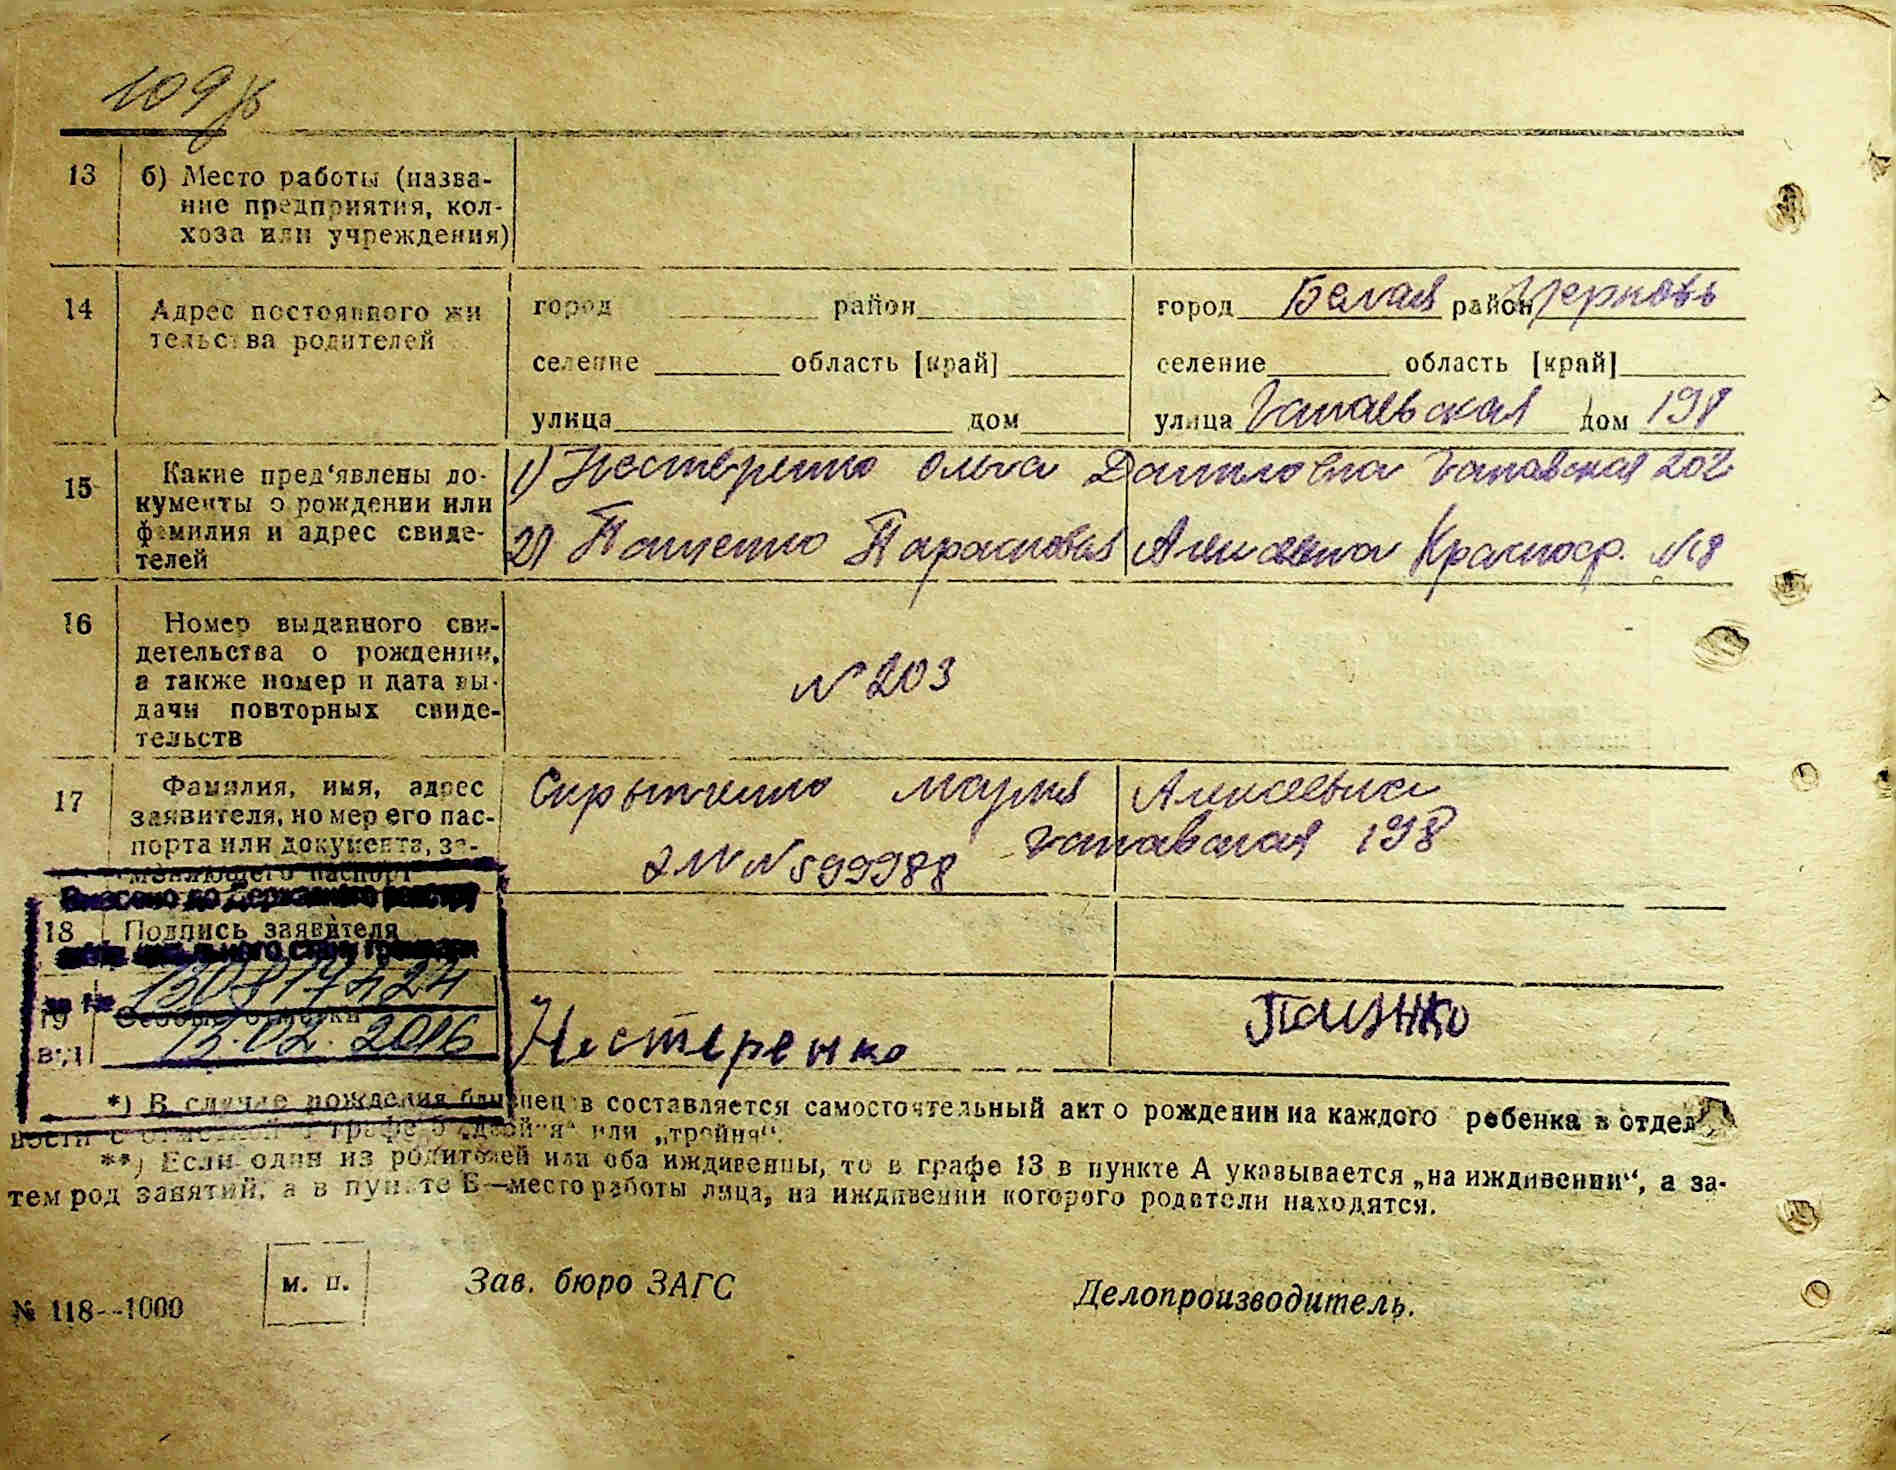 109
13 б) Место работы (назва-
ние предприятия, кол-
хоза или учреждения)
14 Адрес постоянного жи
тельства родителей
город район
селение область [край]
улица дом
город Белая район Церковь
селение область [край]
улица Чапаевская дом 198
15 Какие пред'явлены до-
кументы о рождении или
фамилия и адрес свиде-
телей
1) Нестеренко Ольга Даниловна Чапаевская 202
2) Пащенко Парасковия Алексеевна Красноар. №8
16 Номер выданного сви-
детельства о рождении,
а также номер и дата вы-
дачи повторных свиде-
тельств
№ 203
17 Фамилия, имя, адрес
заявителя, номер его пас-
порта или документа, за-
меняющего паспорт
Мария Алексеевна
Чапаевская 198
№ 599988
Внесено до Державного реєстру
18 Подпись заявителя
актів цивільного стану громадян
за №
19 Особые отметки
від 12.02.2016
Нестеренко
*) В случае рождения близнецов составляется самостоятельный акт о рождении на каждого ребенка в отдель
ности с отметкой в графе 5 „двойня“ или „тройня“.
**) Если один из родителей или оба иждивенцы, то в графе 13 в пункте А указывается „на иждивении“, а за-
тем род занятий, а в пункте Б—место работы лица, на иждивении которого родители находятся.
м. п. Зав. бюро ЗАГС Делопроизводитель.
№ 118--1000